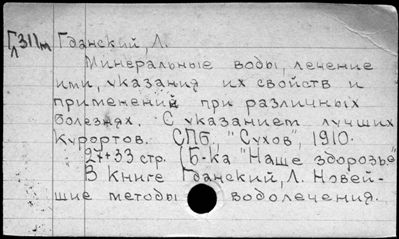 Гл 311m Гданский, Л.
Минеральные воды, лечение
ими, указания их свойств и
применений при различных
болезнях. С указанием лучших
курортов. СПб, "Сухов", 1910.
24+33 стр. (Б-ка "Наше здоровье"
В книге Гданский, Л. Новей-
шие методы водолечения.